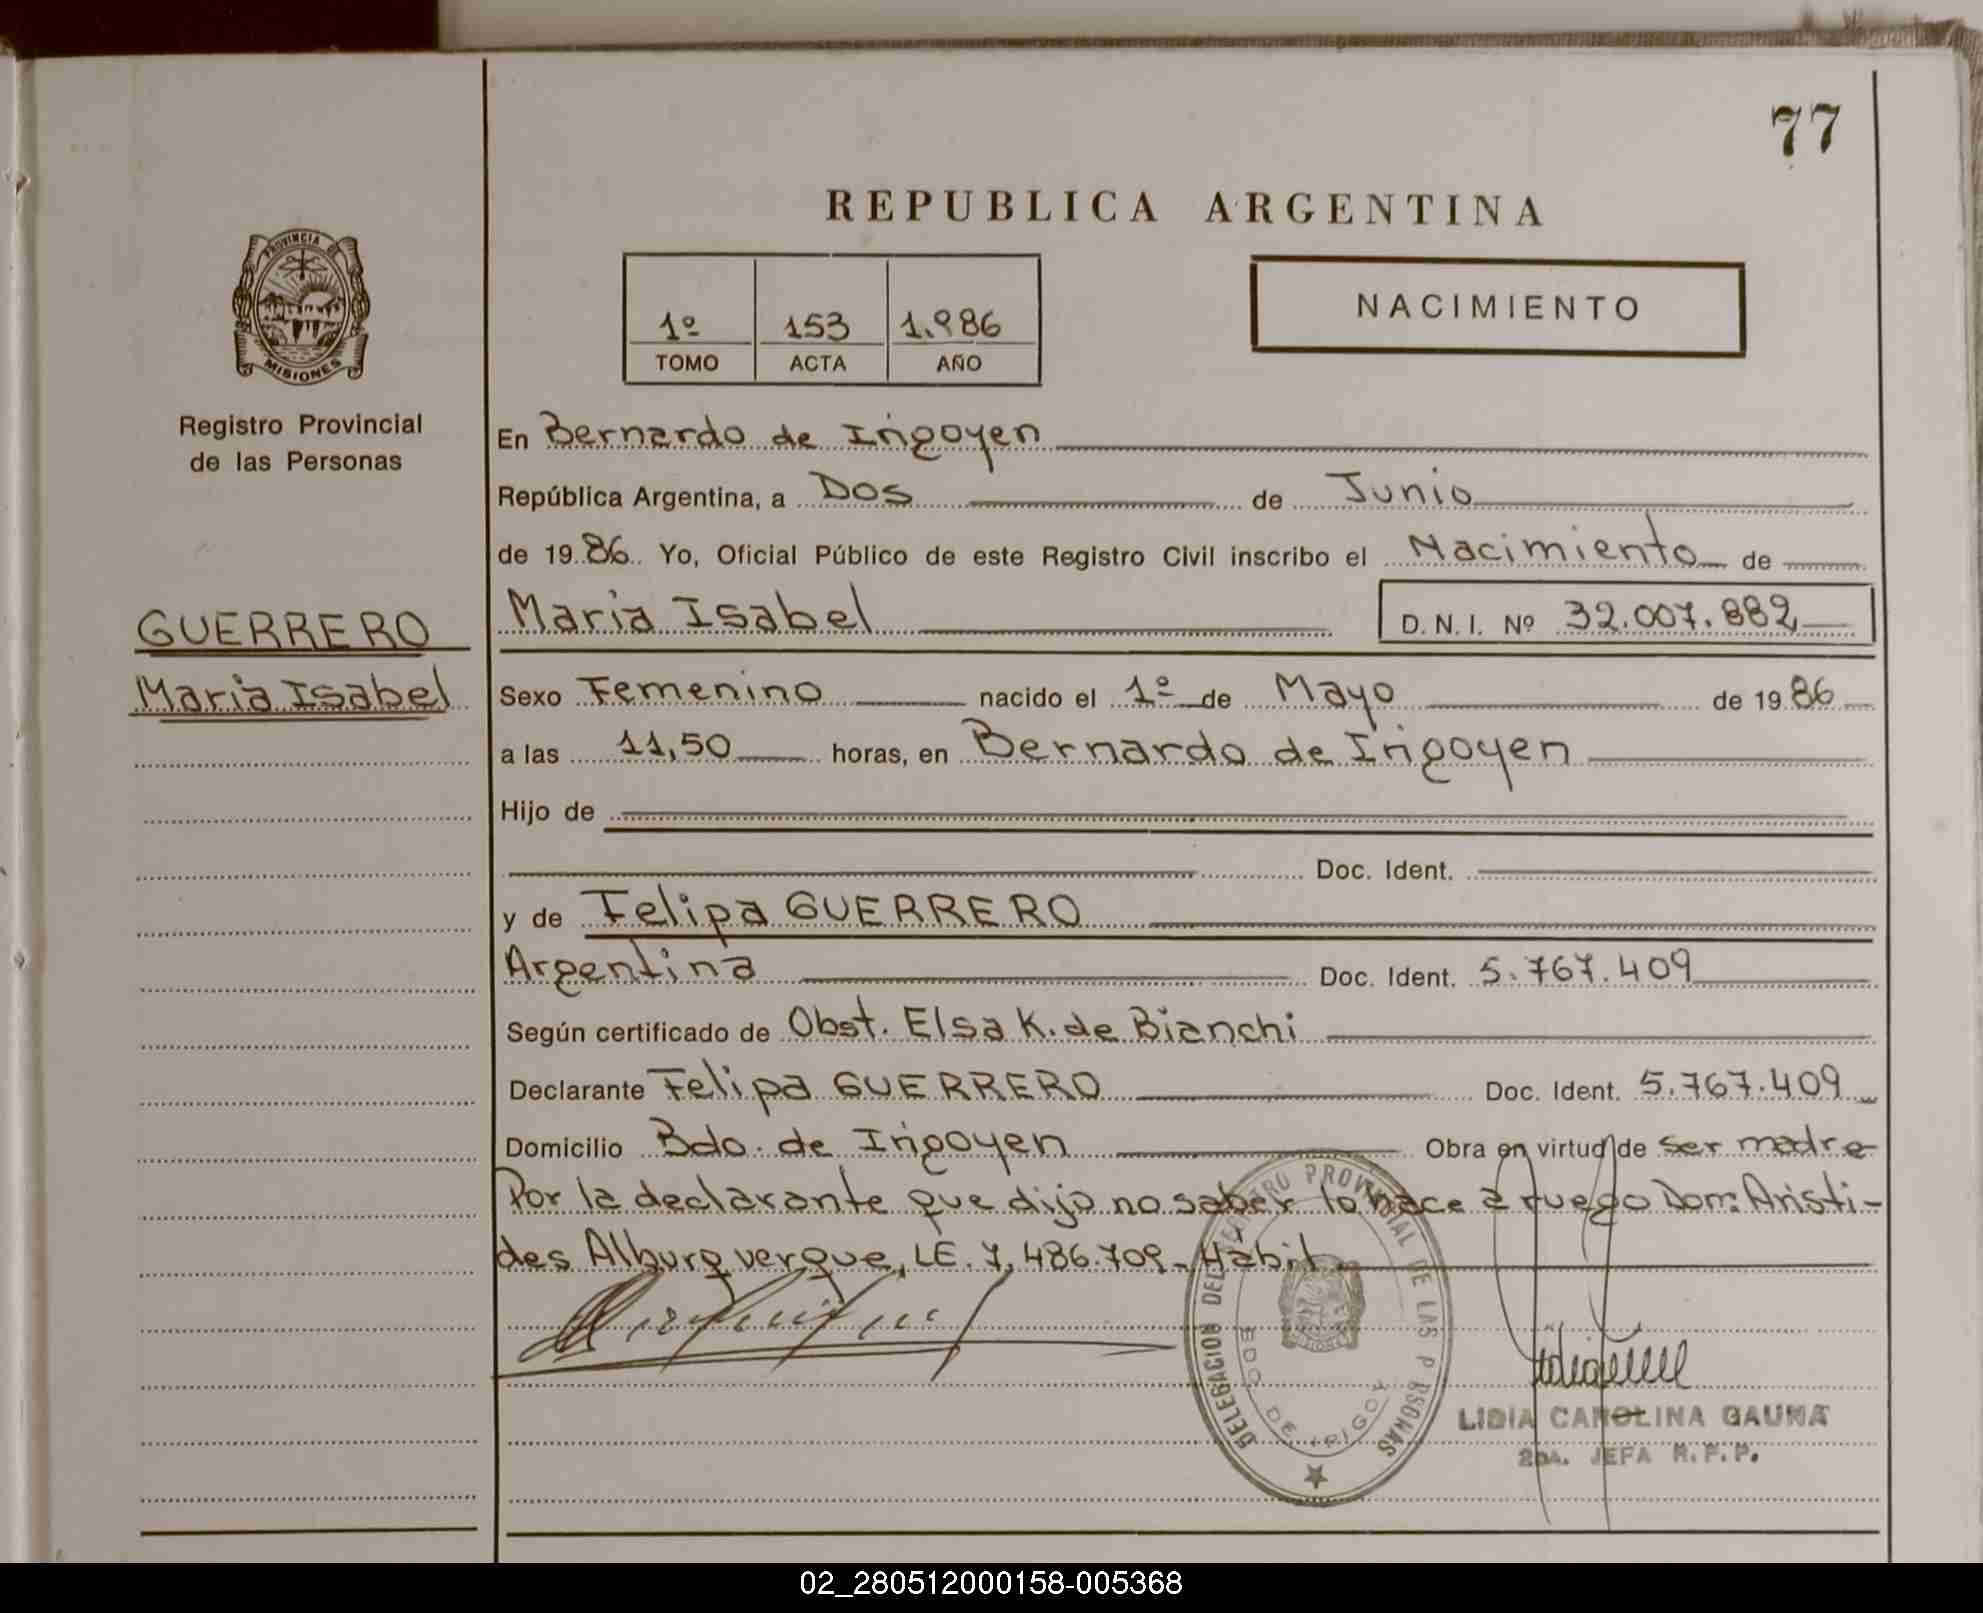 77
REPUBLICA ARGENTINA
PROVINCIA DE
MISIONES
1º 153 1.986
TOMO ACTA AÑO
NACIMIENTO
Registro Provincial
de las Personas
GUERRERO
Maria Isabel
En Bernardo de Irigoyen
República Argentina, a Dos de Junio
de 1986 Yo, Oficial Público de este Registro Civil inscribo el Nacimiento de
Maria Isabel D.N.I. Nº 32.007.882
Sexo Femenino nacido el 1º de Mayo de 1986
a las 11,50 horas, en Bernardo de Irigoyen
Hijo de
Doc. Ident.
y de Felipa GUERRERO
Argentina Doc. Ident. 5.767.409
Según certificado de Obst. Elsa K. de Bianchi
Declarante Felipa GUERRERO Doc. Ident. 5.767.409
Domicilio Bdo. de Irigoyen Obra en virtud de ser madre
Por la declarante que dijo no saber lo hace a ruego Don: Aristi-
des Alburquerque, LE. 7.486.709 - Hábil
DELEGACION DEL REGISTRO PROVINCIAL DE LAS PERSONAS
BDO. DE IRIGOY
LIDIA CAROLINA GAUNA
2DA. JEFA R.P.P.
02_280512000158-005368